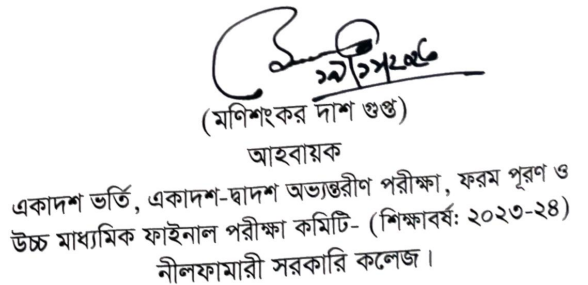 (মণিশংকর দাশ গুপ্ত)
আহবায়ক
একাদশ ভর্তি, একাদশ-দ্বাদশ অভ্যন্তরীণ পরীক্ষা, ফরম পূরণ ও
উচ্চ মাধ্যমিক ফাইনাল পরীক্ষা কমিটি- (শিক্ষাবর্ষ: ২০২৩-২৪)
নীলফামারী সরকারি কলেজ।